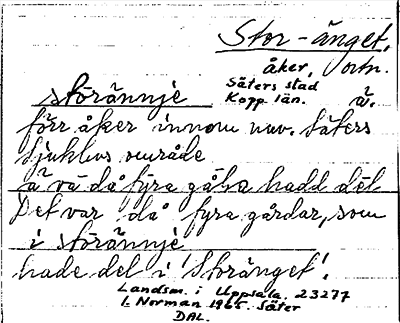 Stor-änget,
åker, ortn.
Säters stad
Kopp. län.
störännje ä.
förr åker innom nuv. Säters
sjukhus område
ä va då fyra gåḷa hadd dēl
Det var då fyra gårdar, som
i störännje
hade del i 'Storänget'.
Landsm. i Uppsala. 23277
I. Norman 1965. Säter
DAL.